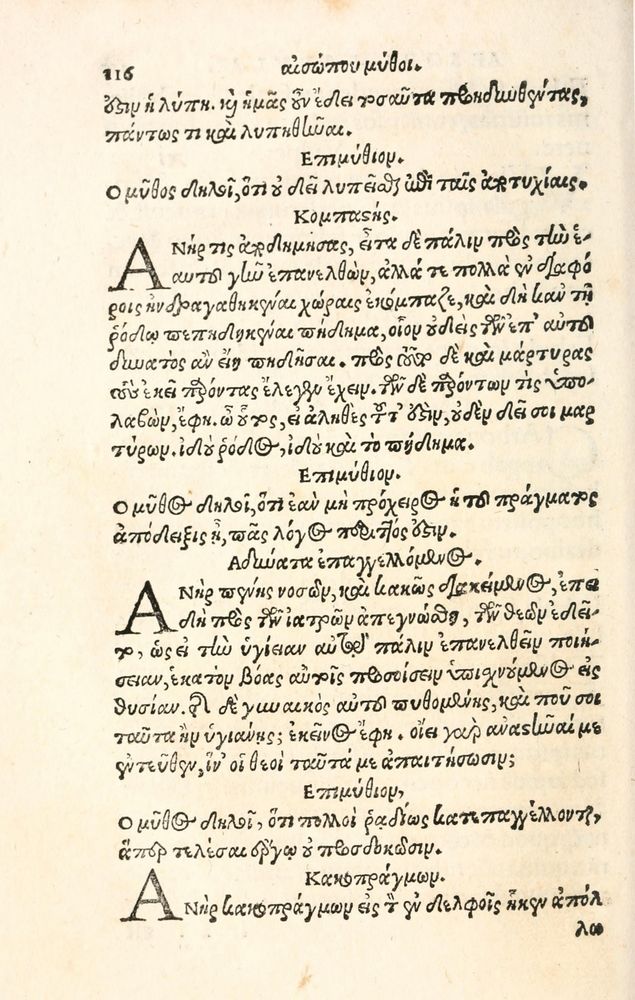 116 αἰσώπου μύθοι.
ὅϛιν ἡ λύπη. καὶ ἡμᾶς οὖν ἔδει τοσαῦτα προηδυνθέντας,
πάντως τι καὶ λυπηθῆναι.
Επιμύθιον.
Ο μῦθος δηλοῖ, ὅτι οὐ δεῖ λυπεῖσθαι ἐπὶ ταῖς ἀποτυχίαις.
Κομπαϛής.
ΑΝήρ τις ἀποδημήσας, εἶτα δὲ πάλιν πρὸς τὴν ἑ-
αυτοῦ γῆν ἐπανελθὼν, ἀλλά τε πολλὰ ἐν διαφό
ροις ἠνδραγαθηκέναι χώραις ἐκόμπαζε, καὶ δὴ κἀν τῇ
ῥόδῳ πεπηδηκέναι πήδημα, οἷον οὐδεὶς τῶν ἐπ' αὐτοῦ
δυνατὸς ἂν εἴη πηδῆσαι. πρὸς τοῦτο δὲ καὶ μάρτυρας
τοὺς ἐκεῖ παρόντας ἔλεγεν ἔχειν. τῶν δὲ παρόντων τὶς ὑπο-
λαβὼν, ἔφη. ὦ οὗτος, εἰ ἀληθὲς τοῦτ' ἐϛιν, οὐδὲν δεῖ σοι μαρ
τύρων. ἰδοὺ ῥόδος, ἰδοὺ καὶ τὸ πήδημα.
Επιμύθιον.
Ο μῦθος δηλοῖ, ὅτι ἐὰν μὴ πρόχειρος ἡ τοῦ πράγματος
ἀπόδειξις ᾖ, πᾶς λόγος περιττός ἐϛιν.
Αδύνατα ἐπαγγελλόμενος.
ΑΝὴρ πένης νοσῶν, καὶ κακῶς διακείμενος, ἐπει
δὴ πρὸς τῶν ἰατρῶν ἀπεγνώσθη, τῶν θεῶν ἐδεῖ-
το, ὡς εἰ τὴν ὑγίειαν αὐτῷ πάλιν ἐπανελθεῖν ποιή-
σειαν, ἑκατὸν βόας αὐτοῖς προσοίσειν ὑπισχνούμενος εἰς
θυσίαν. τῆς δὲ γυναικὸς αὐτοῦ πυθομένης, καὶ ποῦ σοι
ταῦτα ἢν ὑγιάνῃς; ἐκεῖνος ἔφη. οἴει γὰρ ἀναϛῆναί με
ἐντεῦθεν, ἵν' οἱ θεοὶ ταῦτά με ἀπαιτήσωσιν;
Επιμύθιον,
Ο μῦθος δηλοῖ, ὅτι πολλοὶ ῥᾳδίως κατεπαγγέλλονται,
ἅπερ τελέσαι ἔργῳ οὐ προσδοκῶσιν.
Κακοπράγμων.
ΑΝὴρ κακοπράγμων εἰς τὸν ἐν δελφοῖς ἧκεν ἀπόλ
λω